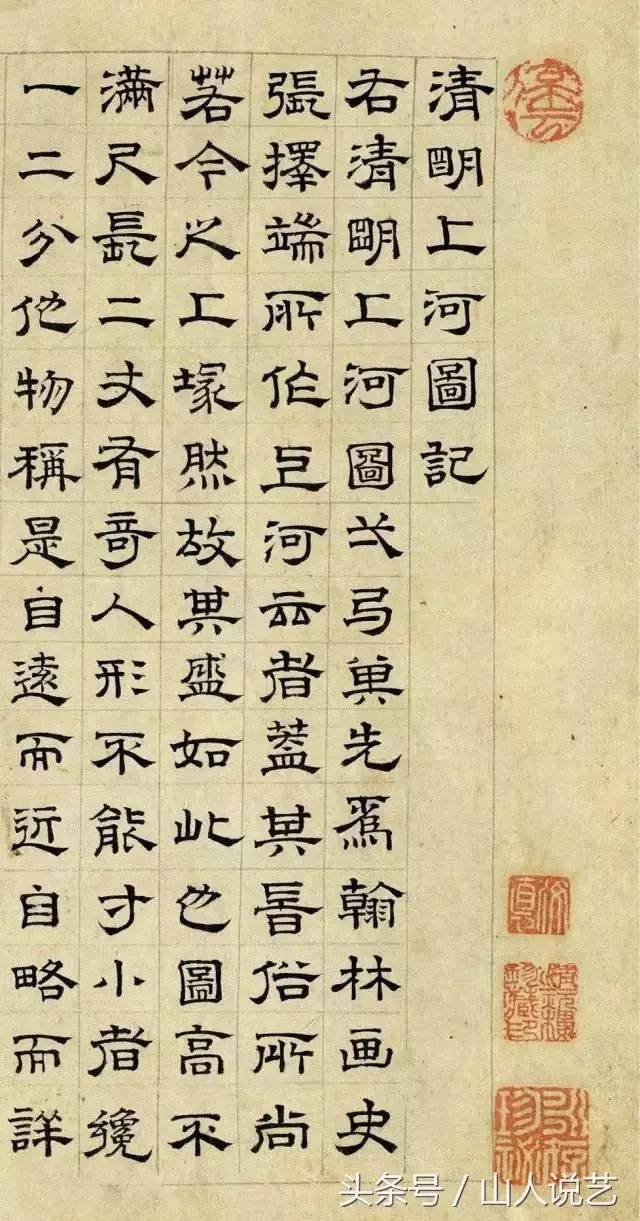 清明上河圖記
右清明上河圖弌弓先爲翰林画史
張擇端所作河云者蓋其旹俗所尚
若今之上塚然故其盛如此也圖高不
滿尺長二丈有奇人形不能寸小者纔
一二分他物稱是自遠而近自略而詳
头条号 / 山人说艺